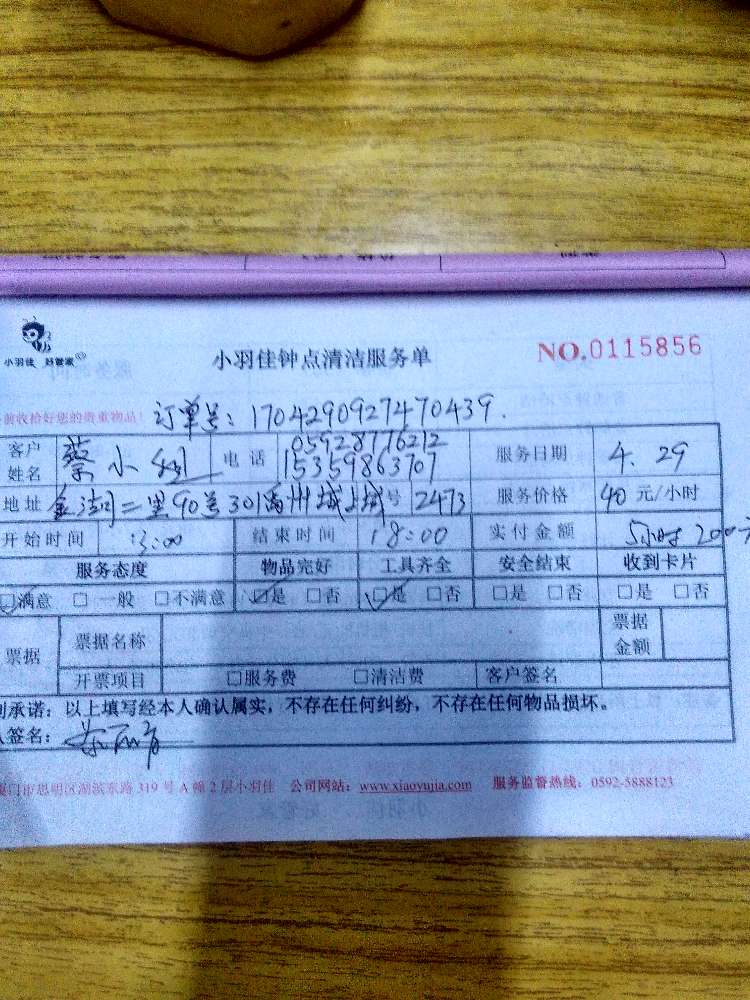 小羽佳 好管家
小羽佳钟点清洁服务单
NO.0115856
前收拾好您的贵重物品!
订单号:1704290927470439.
客户姓名 蔡小姐 电话 05928776212 15359863707 服务日期 4.29
地址 金湖二里90号301禹州城上城 号 2473 服务价格 40 元/小时
开始时间 13:00 结束时间 18:00 实付金额 5小时 200
服务态度 物品完好 工具齐全 安全结束 收到卡片
□满意 □一般 □不满意 □是 □否 □是 □否 □是 □否 □是 □否
票据 票据名称 票据金额
开票项目 □服务费 □清洁费 客户签名
承诺:以上填写经本人确认属实,不存在任何纠纷,不存在任何物品损坏。
签名:
厦门市思明区湖滨东路 319 号 A 幢 2 层小羽佳 公司网站:www.xiaoyujia.com 服务监督热线:0592-5888123